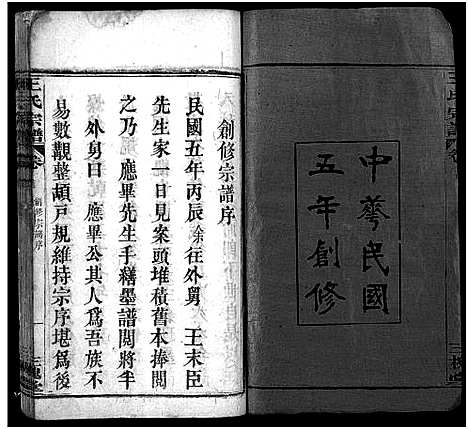 中華民國
五年創修
創修宗譜序
民國五年丙辰余往外舅　王末臣
先生家一日見案頭堆積舊本捧閱
之乃　應畢先生手繕墨譜閱將半
外舅曰　應畢公其人為吾族不
易數觀整頓戸規維持宗序堪為後
王氏宗譜 卷一 創修宗譜序 一 三槐堂